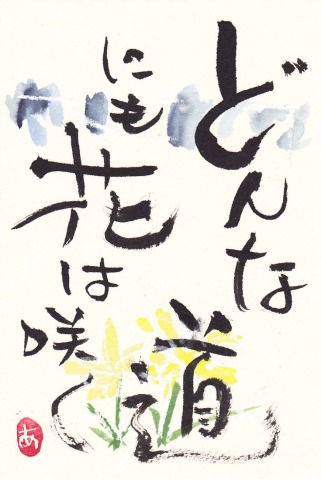 どんな道
にも花は咲く
あ